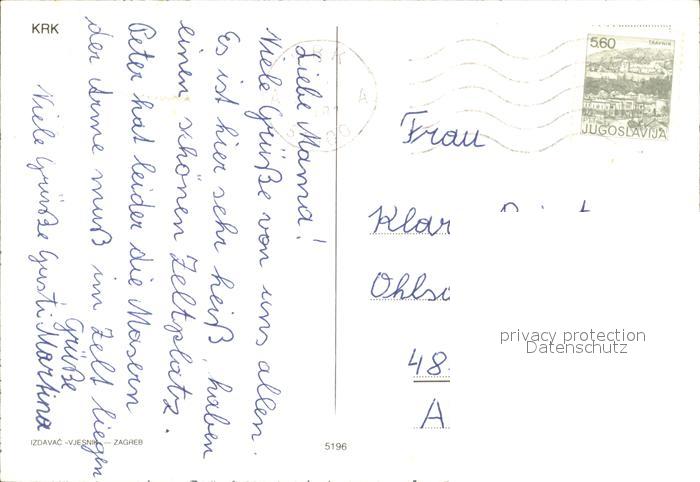 KRK
Liebe Mama!
Viele Grüße von uns allen.
Es ist hier sehr heiß, haben
einen schönen Zeltplatz.
Peter hat leider die Masern
der Arme muß im Zelt liegen
Grüße
Viele Grüße Gusti Martina
IZDAVAČ -VJESNIK- — ZAGREB
5196
5.60
TRAVNIK
JUGOSLAVIJA
Frau
Klar
48
A
privacy protection
Datenschutz